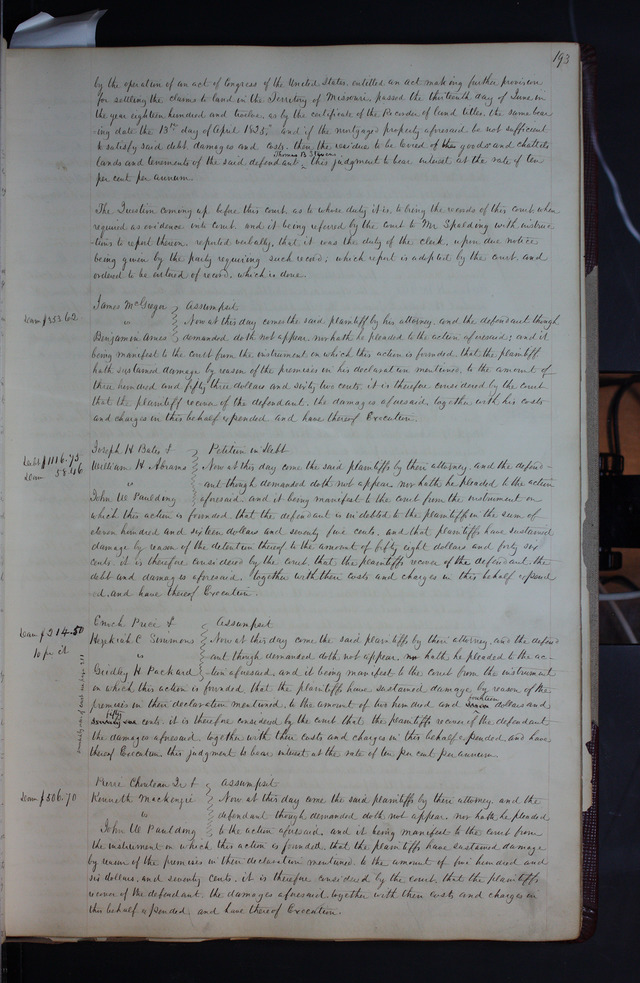 193
by the operation of an act of Congress of the United States, entitled an act making further provision
for settling the claims to land in the Territory of Missouri, passed the thirteenth day of June in
the year eighteen hundred and twelve, as by the certificate of the Recorder of land titles, the same bear-
ing date the 13th day of April 1835," and if the mortgage property aforesaid be not sufficient
to satisfy said debt, damages and costs, then the residue to be levied of the goods and chattels
lands and tenements of the said defendant, Thomas B this judgment to bear interest at the rate of ten
per cent per annum.
The Question coming up before this court, as to whose duty it is, to bring the records of this court when
required as evidence into court, and it being referred by the court to Mr Spalding with instruc-
tions to report thereon, reported verbally, that it was the duty of the clerk, upon due notice
being given by the party requiring such record; which report is adopted by the court, and
ordered to be entered of record, which is done.
James McGregor } Assumpsit
Dam $353.62
vs } Now at this day comes the said plaintiff by his attorney, and the defendant though
Benjamin Ames } demanded, doth not appear, nor hath he pleaded to the action aforesaid; and it
being manifest to the court from the instrument on which this action is founded, that the plaintiff
hath sustained damage by reason of the premises in his declaration mentioned, to the amount of
three hundred and fifty three dollars and sixty two cents, it is therefore considered by the court
that the plaintiff recover of the defendant, the damages aforesaid, together with his costs
and charges in this behalf expended, and have thereof Execution.
Joseph H Bates & } Petition in Debt
Debt $1116.75
William H Abrams } Now at this day come the said plaintiffs by their attorney, and the defend-
Dam 58.46
vs } ant though demanded doth not appear, nor hath he pleaded to the action
John W Paulding } aforesaid, and it being manifest to the court from the instrument on
which this action is founded, that the defendant is indebted to the plaintiffs in the sum of
eleven hundred and sixteen dollars and seventy five cents, and that plaintiffs have sustained
damage by reason of the detention thereof to the amount of fifty eight dollars and forty six
cents, it is therefore considered by the court that the plaintiffs recover of the defendant, the
debt and damages aforesaid, together with their costs and charges in this behalf expend
ed, and have thereof Execution.
Enoch Price & } Assumpsit
Dam $214.50
Hezekiah C Simmons } Now at this day come the said plaintiffs by their attorney, and the defend-
10 pr ct
vs } ant though demanded doth not appear, nor hath he pleaded to the ac-
Gridley H Packard } tion aforesaid, and it being manifest to the court from the instrument
on which this action is founded that the plaintiffs have sustained damage, by reason of the
premises in their declaration mentioned, to the amount of two hundred and fourteen dollars and
fifty cents, it is therefore considered by the court that the plaintiffs recover of the defendant
the damages aforesaid, together with their costs and charges in this behalf expended, and have
thereof Execution, this judgment to bear interest at the rate of ten per cent per annum.
Pierre Chouteau Jr & } Assumpsit
Dam $506.70
Kenneth Mackenzie } Now at this day come the said plaintiffs by their attorney, and the
vs } defendant though demanded doth not appear, nor hath he pleaded
John W Paulding } to the action aforesaid, and it being manifest to the court from
the instrument on which this action is founded, that the plaintiffs have sustained damage
by reason of the premises in their declaration mentioned, to the amount of five hundred and
six dollars, and seventy cents, it is therefore considered by the court, that the plaintiffs
recover of the defendant, the damages aforesaid, together with their costs and charges in
this behalf expended, and have thereof Execution.